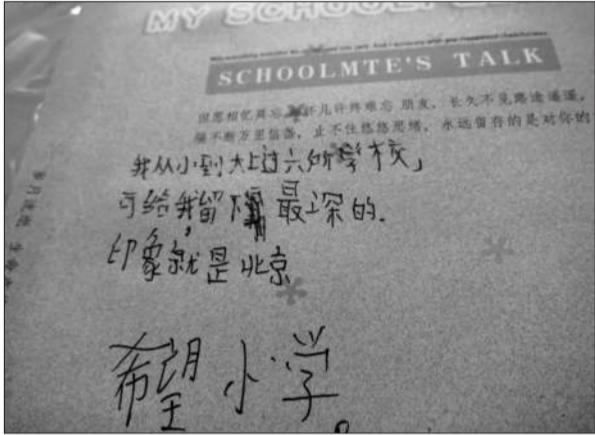 MY SCHOOL
SCHOOLMTE'S TALK
几许终难忘 朋友，长久不见路途遥遥，
隔不断万里 止不住悠悠思绪，永远留存的是对你的
我从小到大上过六所学校，
可给我留下 最深的.
印象就是北京
希望小学。